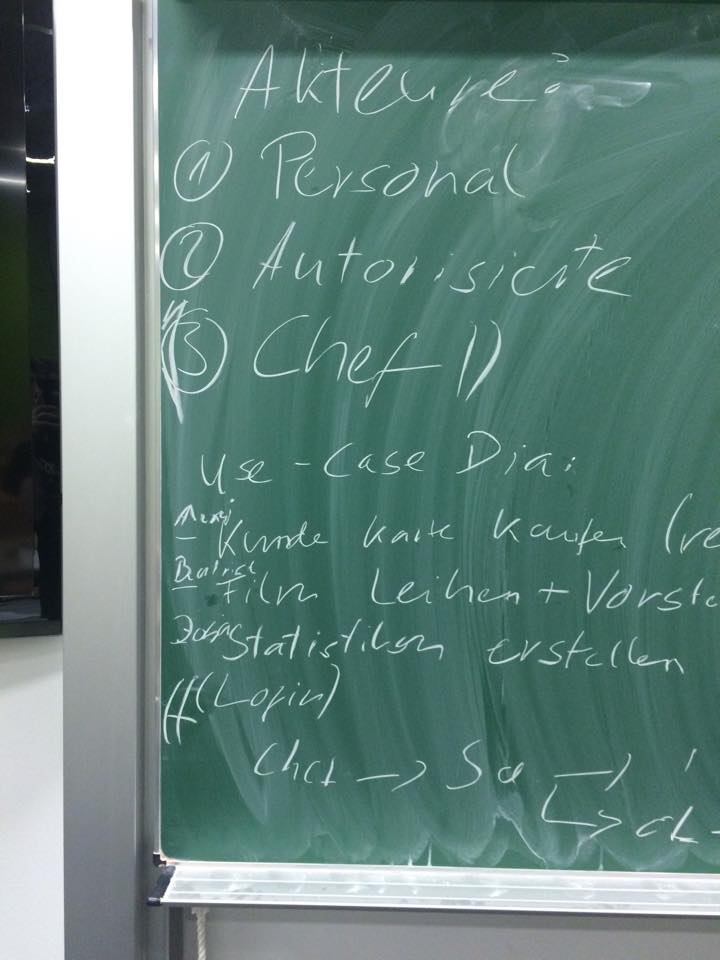 Akteure:
① Personal
② Autorisierte
③ Chef
Use-Case Dia:
- Kunde Karte kaufen (re
- Film Leihen + Vorste
Statistiken erstellen
(Login)
Chef →